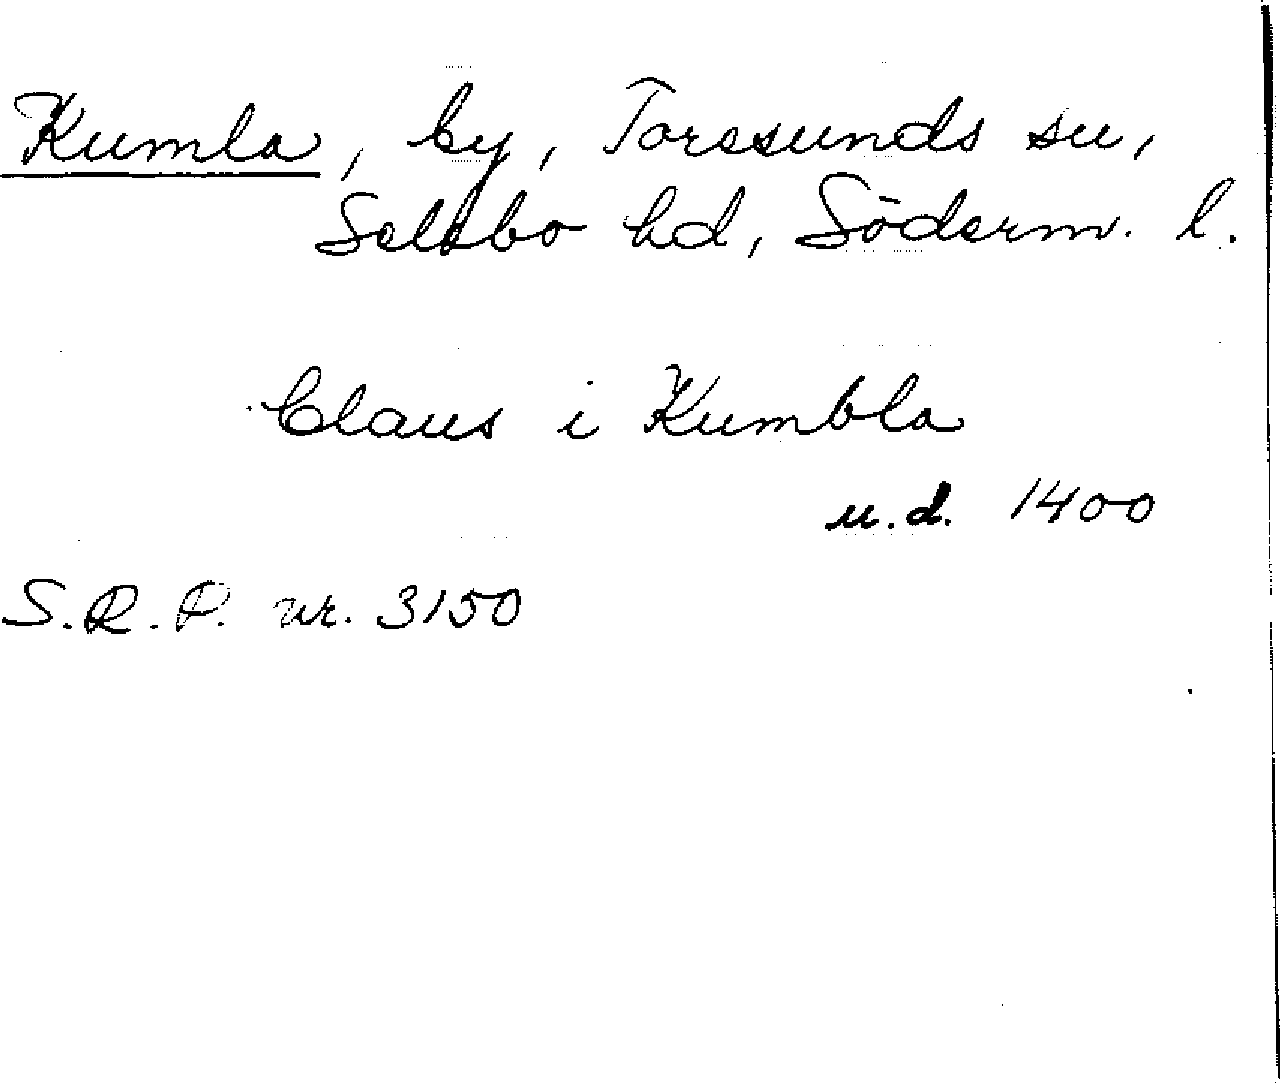 Kumla, by, Toresunds sn,
Selebo hd, Söderm. l.
Claus i Kumbla
u.d. 1400
S.R.P. nr. 3150